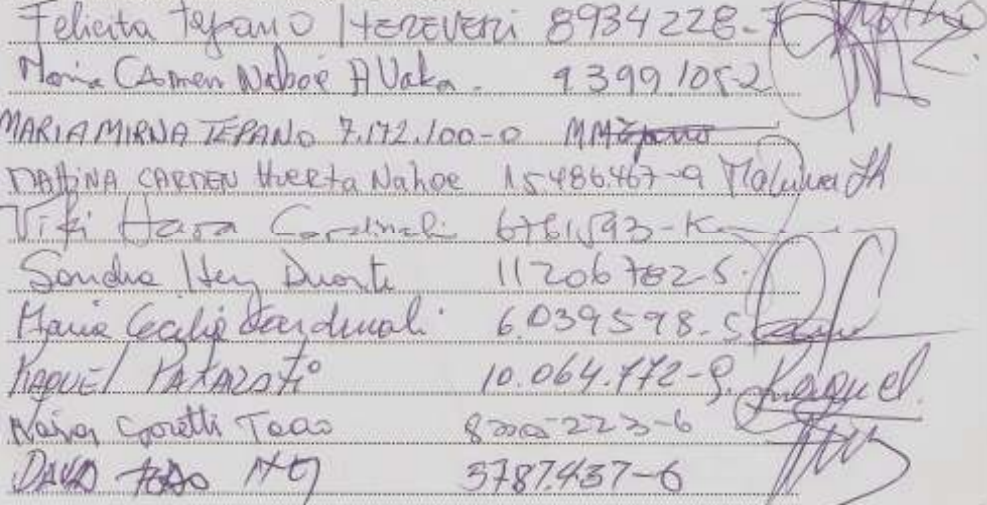 Felicita Tepano Hereveri 8934228-7
Maria Carmen Nahoe A Vaka. 9399105-2
MARIA MIRNA TEPANO 7.172.100-0 MMTepano
CARMEN Huerta Nahoe 15486467-9
Viki Haoa Cardinali 6761593-K
Sandra Hey Duarte 11206782-5.
Maria Cecilia Cardinali 6.039598-5
RAQUEL PAKARATI 10.064.772-9. Raquel.
Goretti Teao 223-6
DAVID TEAO 5787.437-6